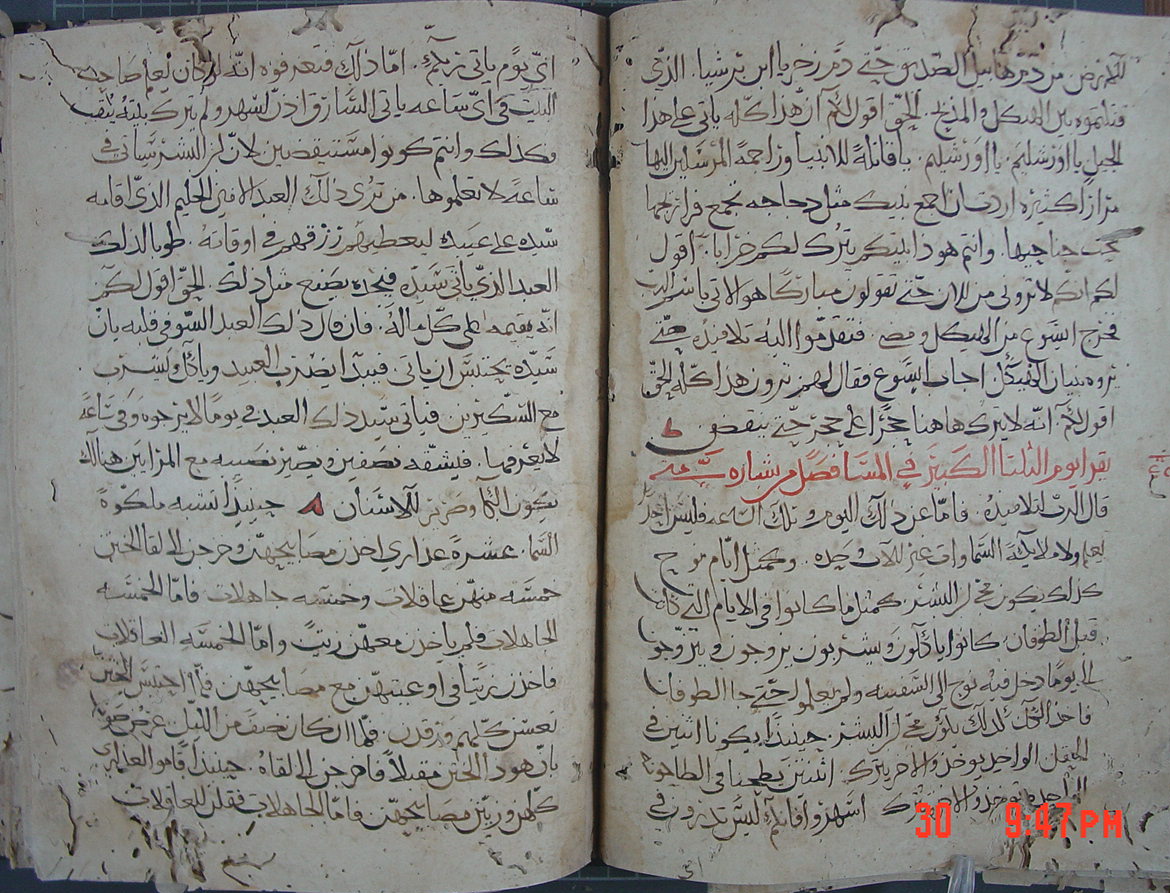 الارض من دم هابيل الصديق حتى دم زخريا ابن برشيا. الذي
قتلتموه بين الهيكل والمذبح. الحق اقول لكم ان هذا كله ياتي على هذا
الجيل يا اورشليم. يا اورشليم. يا قاتلة للانبيا وراجمة المرسلين اليها
مرارًا كثيرة اردت ان اجمع بنيك مثل دجاجه تجمع فراخها
تحت جناحيها. وانتم هوذا بيتكم يترك لكم خرابا. اقول
لكم انكم لا تروني من الان حتى تقولون مباركًا هو الاتي باسم الرب
فخرج ايسوع من الهيكل ومضى. فتقدموا اليه تلاميذه حتى
يروه بنيان الهيكل. اجاب ايسوع فقال لهم ترون هذا كله الحق
اقول لكم. انه لا يترك هاهنا حجرًا على حجر حتى ينقض
يقرا يوم الثلثا الكبير في المسا فصل من بشاره متى
قال الرب لتلاميذه. فامّا عن ذلك اليوم وتلك الساعه فليس احد
يعلم ولا ملايكة السماوات غير الاب وحده. وكمثل ايام نوح
كذلك يكون مجي ابن البشر. كمثل ما كانوا في الايام التي كانت
قبل الطوفان. كانوا ياكلون ويشربون يزوجون ويتزوجون
الى يومًا دخل فيه نوح الى السفينه ولم يعلموا حتى جا الطوفان
فاخذ الكل كذلك يكون مجي ابن البشر. حينيذٍ يكونا اثنين في
الحقل الواحد يوخذ والاخر يترك. اثنتين يطحنا في الطاحونه
الواحده توخذ والاخرى تترك اسهروا فانكم ليس تدرون في
ايّ يومًا ياتي ربكم. امّا ذلك فتعرفوه انّه لو كان يعلم صاحب
البيت في ايّ ساعه ياتي السارق اذن لسهر ولم يترك بيته ينقب
وكذلك وانتم كونوا مستيقضين لان ابن البشر ياتي في
ساعة لا تعلموها. من ترى ذلك العبد الامين الحليم الذي اقامه
سيده على عبيده ليعطيهم رزقهم في اوقاته. طوبا لذلك
العبد الذي ياتي سيده فيجده يصنع مثل ذلك. الحق اقول لكم
انّه يقيمه على كل ماله. فان قال ذلك العبد السّو في قلبه بان
سيّده يحتبس ان ياتي. فيبدا يضرب العبيد وياكل ويشرب
مع السكيرين فياتي سيد ذلك العبد في يومًا لا يرجوه وفي ساعة
لا يعرفها. فيشقّه نصفين ويصيّر نصيبه مع المرايين هنالك
يكون البكا وصرير الاسنان حينيذٍ تشبه ملكوة
السما. عشرة عذاري اخذن مصابيحهن وخرجن الى لقا الختن
خمسه منهن عاقلات وخمسه جاهلات فامّا الخمسه
الجاهلات فلم ياخذن معهن زيت وامّا الخمسه العاقلات
فاخذن زيتًا في اوعيتهن مع مصابيحهن فلمّا احتبس الختن
نعسن كلهم ورقدن. فلما ان كان نصف من الليل عرض صوت
بان هوذا الختن مقبلاً فاخرجن الى لقاه. حينيذٍ قاموا العذاري
كلهن وزيّن مصابيحهن فامّا الجاهلات فقلن للعاقلات
30 9:47PM